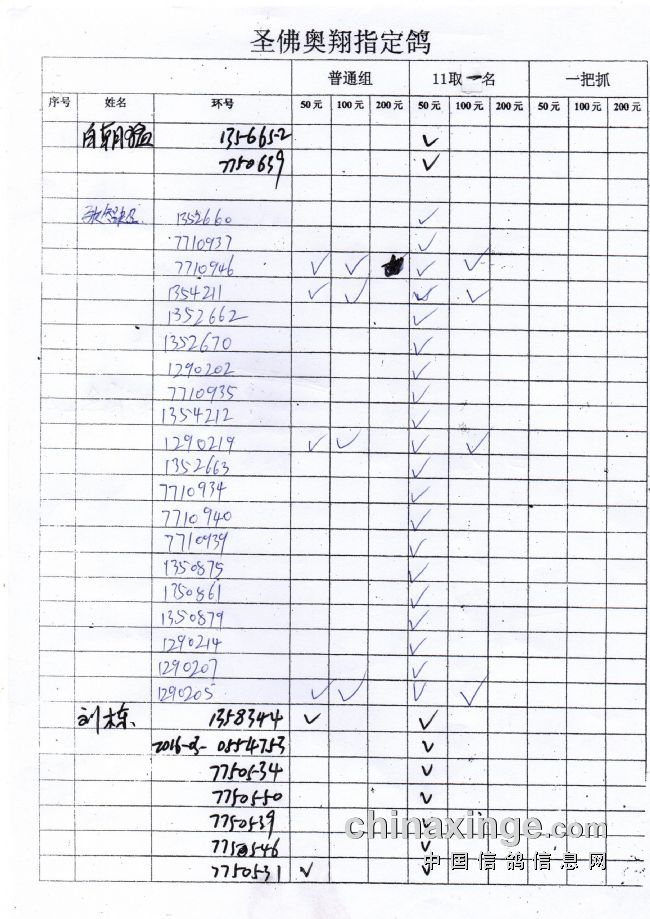 圣佛奥翔指定鸽
普通组 11取一名 一把抓
序号 姓名 环号 50元 100元 200元 50元 100元 200元 50元 100元 200元
1356652 ✓
7750639 ✓
1352660 ✓
7710937 ✓
7710946 ✓ ✓ ✓ ✓
1354211 ✓ ✓ ✓ ✓
1352662 ✓
1352670 ✓
1290202 ✓
7710935 ✓
1354212 ✓
1290219 ✓ ✓ ✓ ✓
1352663 ✓
7710934 ✓
7710940 ✓
7710939 ✓
1350875 ✓
1350861 ✓
1350879 ✓
1290214 ✓
1290207 ✓
1290205 ✓ ✓ ✓ ✓
刘栋 1358344 ✓ ✓
2016-03-0554753 ✓
7750534 ✓
7750550 ✓
7750539 ✓
7750546 ✓
7750531 ✓ ✓
chinaxinge.com
中国信鸽信息网